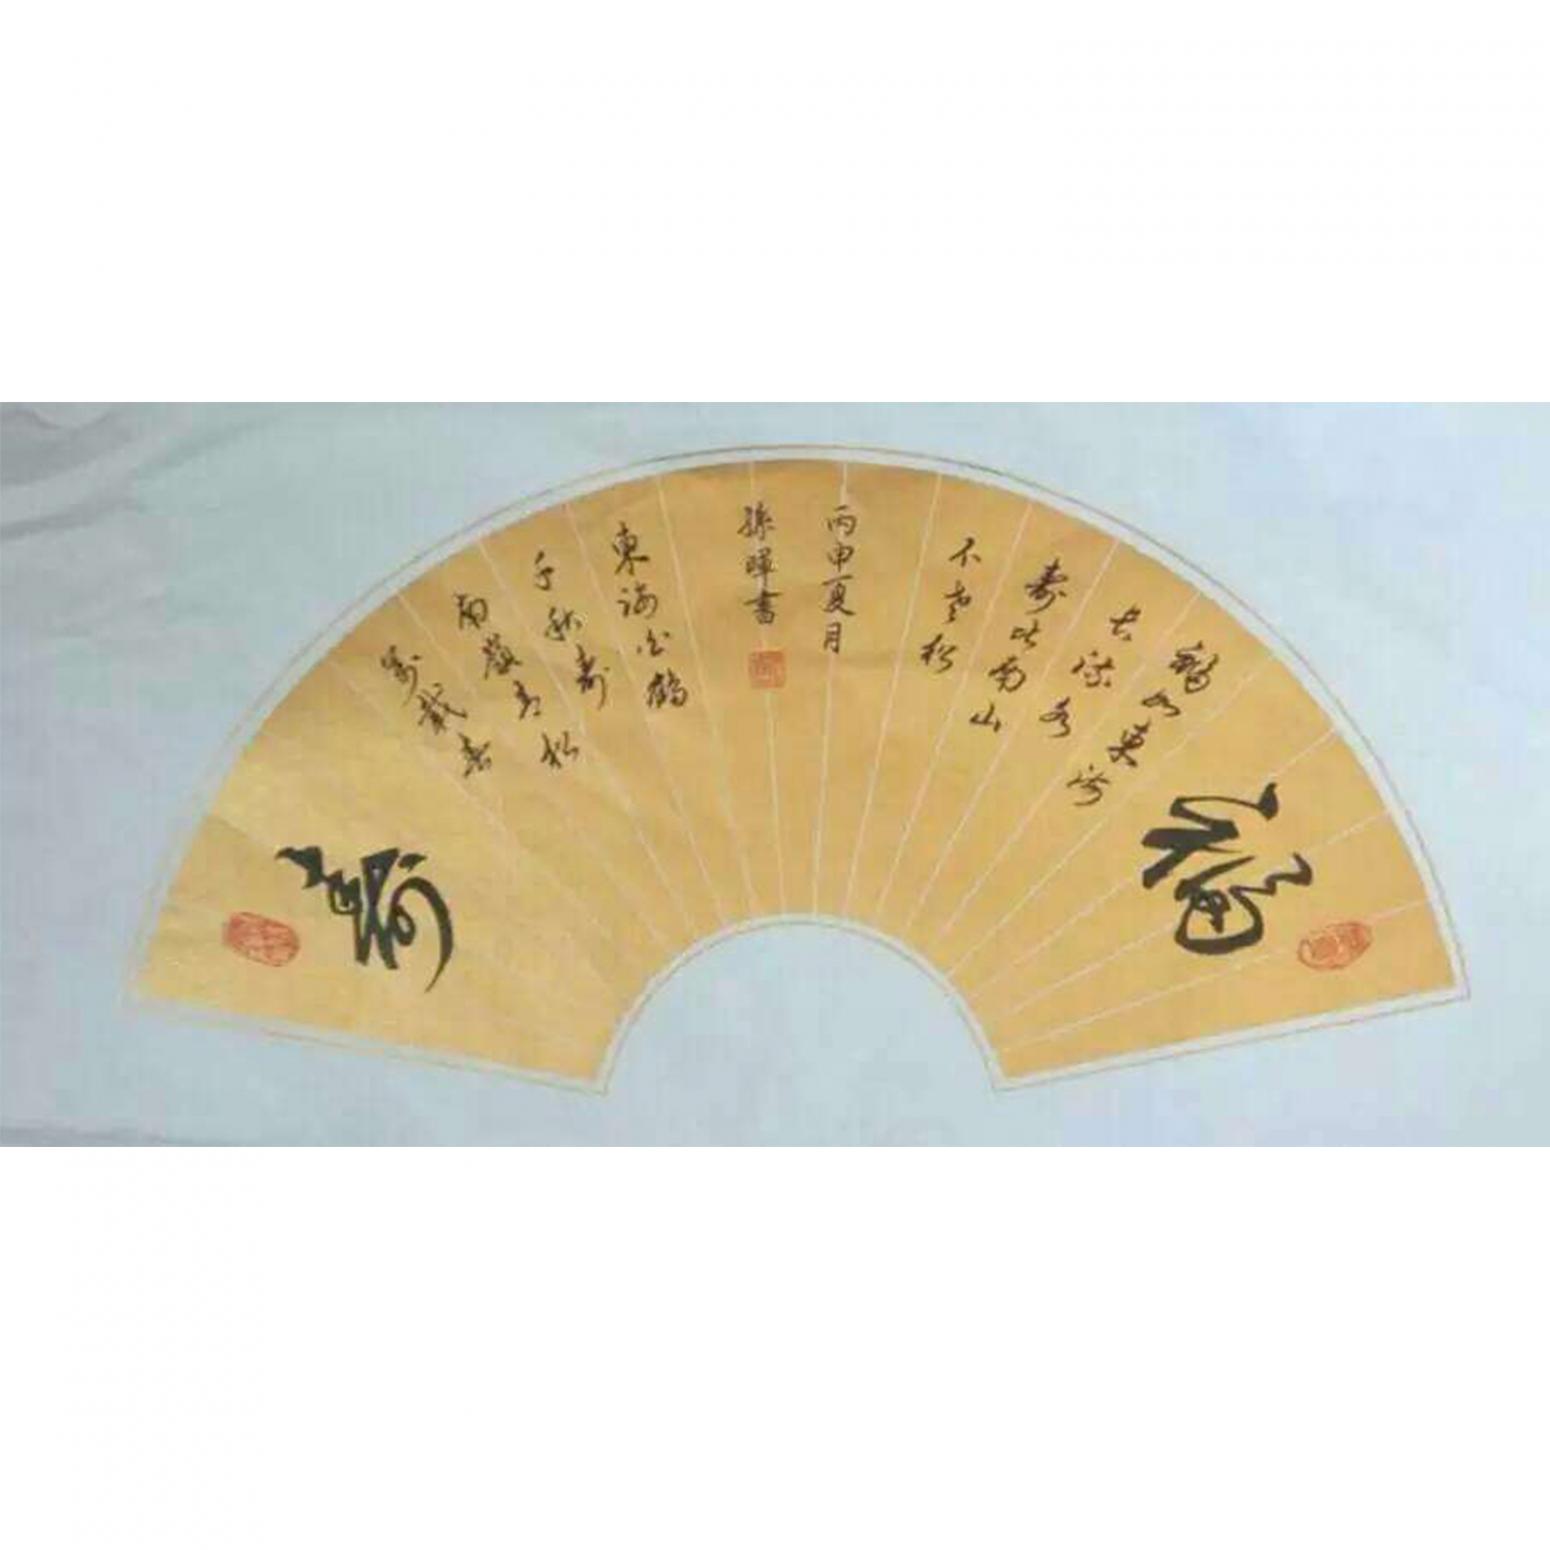 福
福如東海
長流水
壽比南山
不老松
丙申夏月
孫暉書
東海白鶴
千秋壽
南嶺青松
萬載春
壽